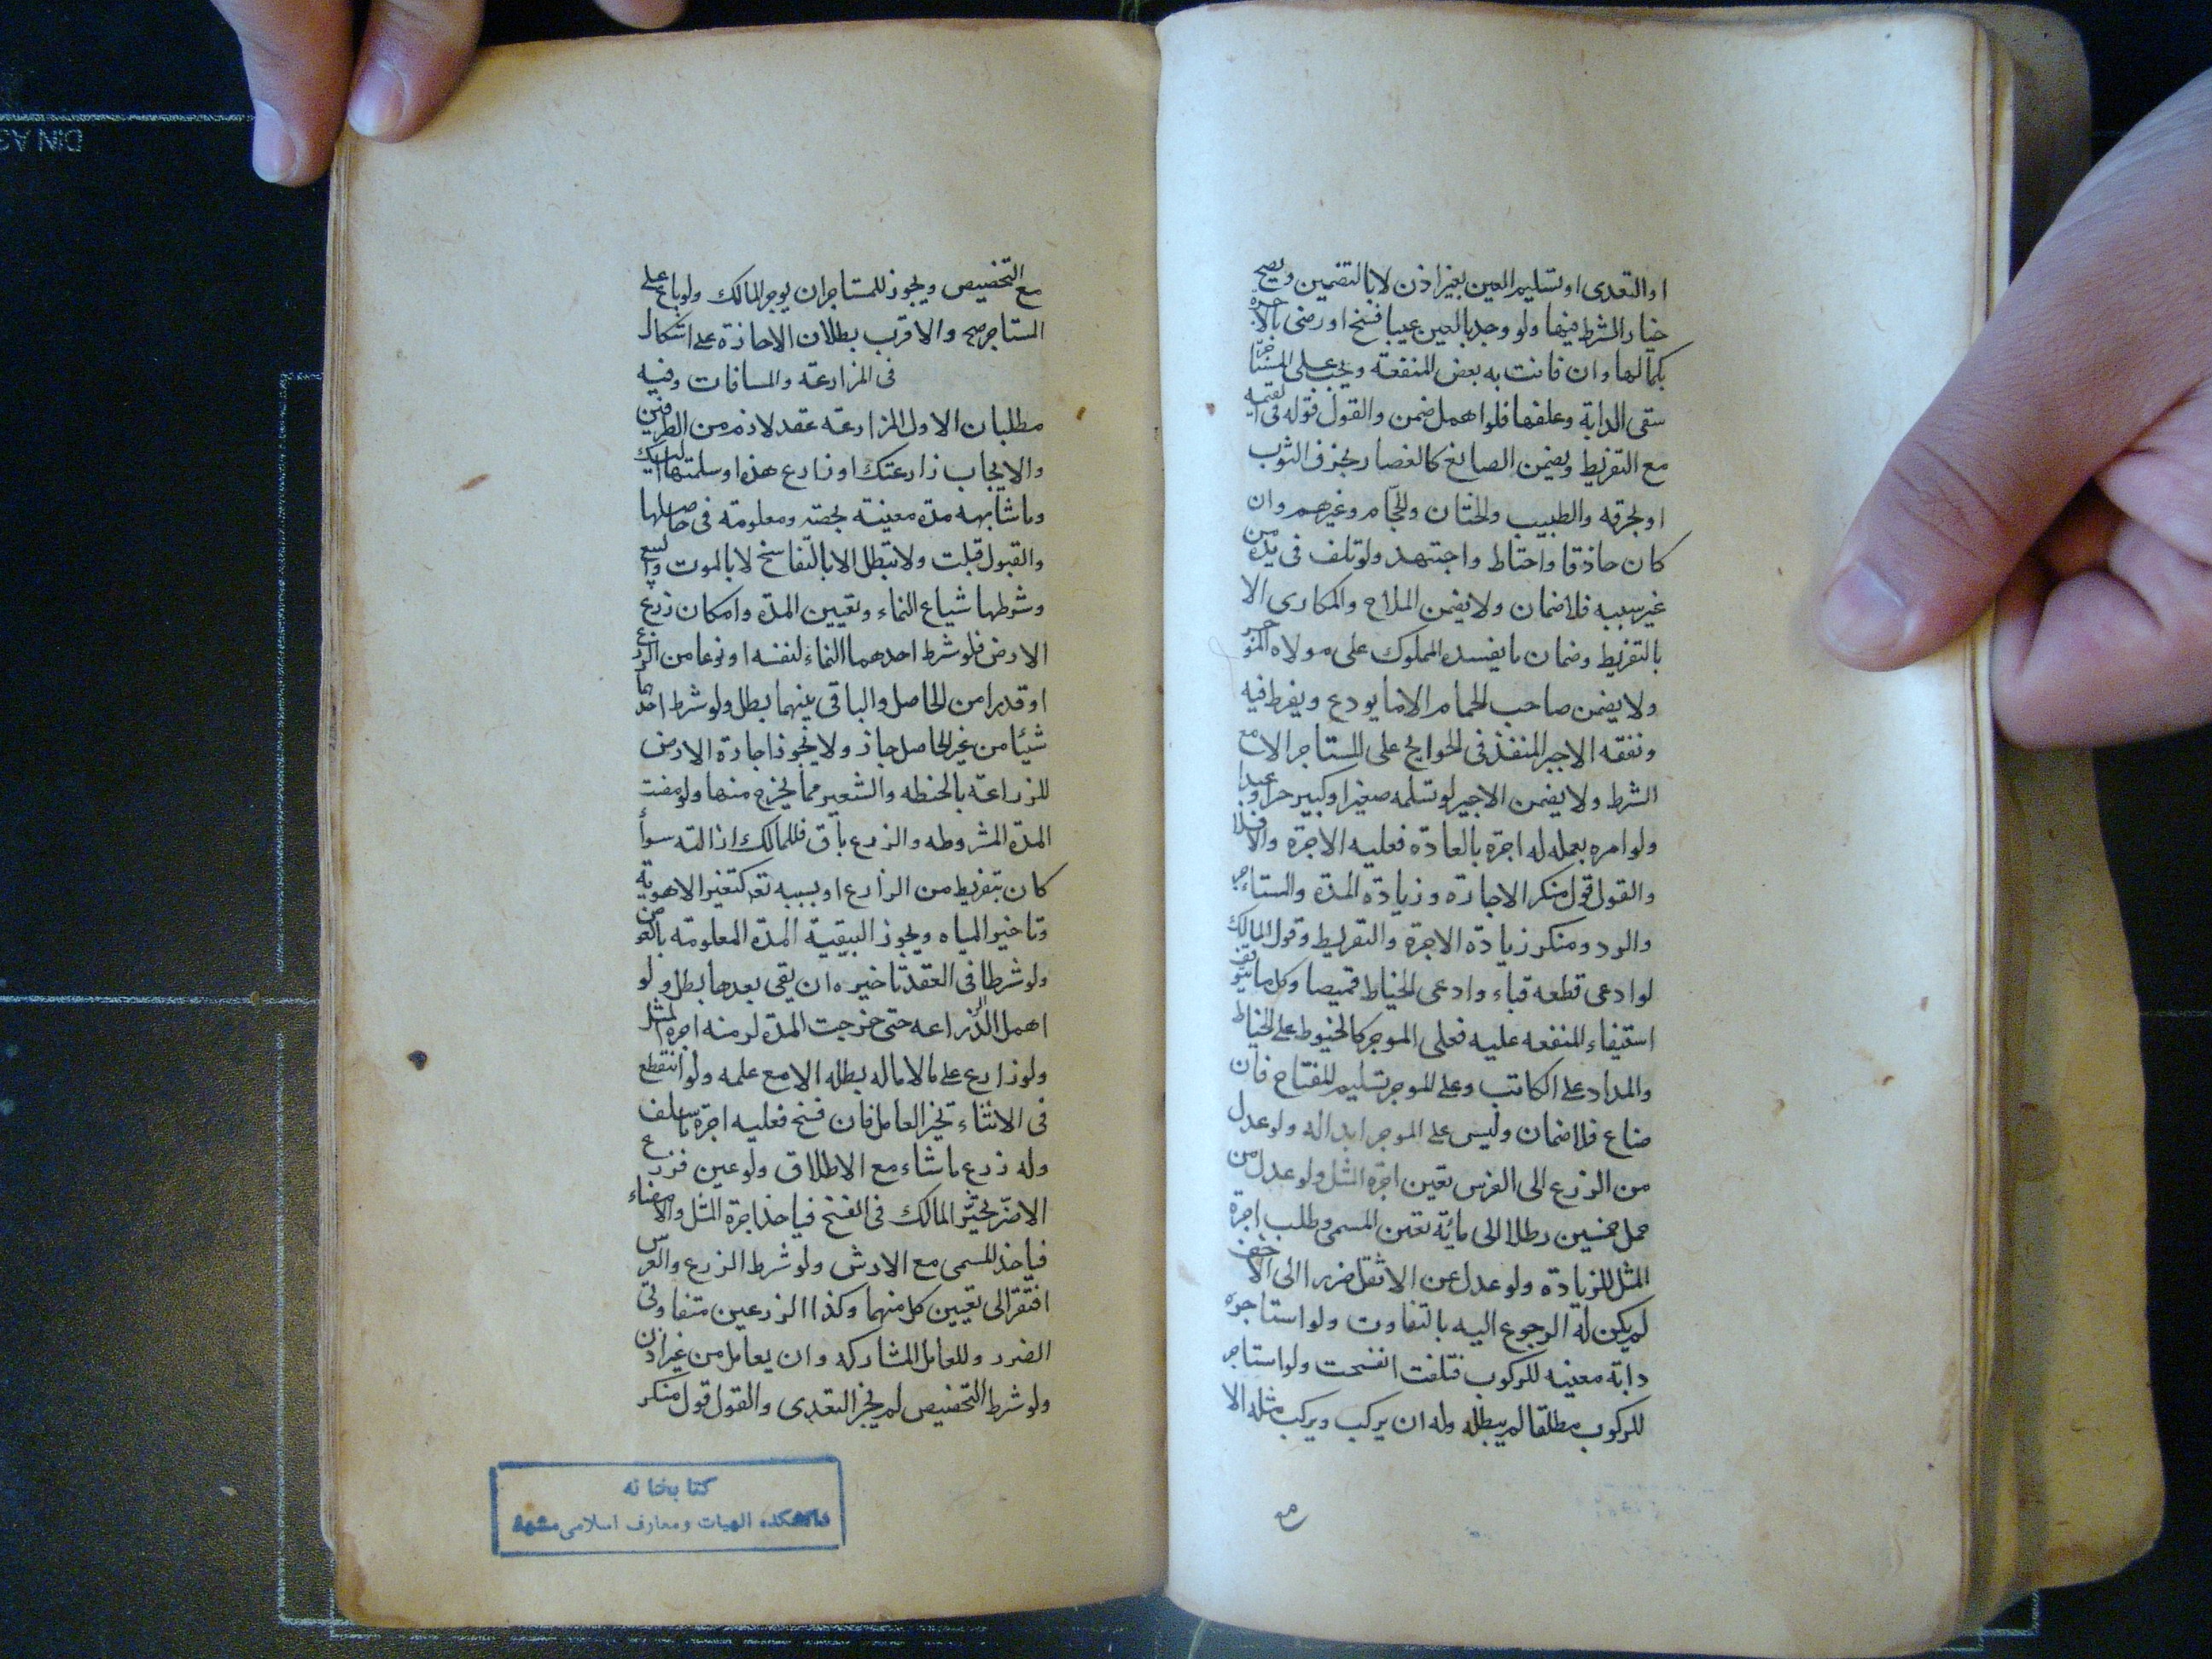 او التعدى او تسليم العين بغير اذن لا بالتضمين ويصح
خيار الشرط فيها ولو وجد بالعين عيبا فسخ او رضى بالاجرة
بكمالها وان فاتت به بعض المنفعة ويجب على المستاجر
سقى الدابة وعلفها فلو اهمل ضمن والقول قوله فى القيمة
مع التفريط ويضمن الصانع كالقصار يخرق الثوب
او يحرقه والطبيب والختان والحجام وغيرهم وان
كان حاذقا واحتاط واجتهد ولو تلف فى يده من
غير سببه فلا ضمان ولا يضمن الملاح والمكارى الا
بالتفريط وضمان ما يفسده المملوك على مولاه الموجر
ولا يضمن صاحب الحمام الا ما يودع ويفرط فيه
ونفقه الاجير المنفذ فى الحوايج على المستاجر الا مع
الشرط ولا يضمن الاجير لو تسلمه صغيرا او كبير حرا او عبدا
ولو امره بعمله له اجرة بالعادة فعليه الاجرة والا فلا
والقول قول منكر الاجارة وزيادة المدة والمستاجر
والرد ومنكر زيادة الاجرة والتفريط وقول المالك
لو ادعى قطعه قباء وادعى الخياط قميصا وكل ما يتوقف
استيفاء المنفعه عليه فعلى الموجر كالخيوط على الخياط
والمداد على الكاتب وعلى الموجر تسليم المفتاح فان
ضاع فلا ضمان وليس على الموجر ابداله ولو عدل
من الزرع الى الغرس تعين اجرة المثل ولو عدل من
حمل خمسين رطلا الى مائة تعين المسمى وطلب اجرة
المثل للزيادة ولو عدل عن الاثقل ضررا الى الاخف
لم يكن له الرجوع اليه بالتفاوت ولو استاجره
دابة معينه للركوب فتلفت انفسخت ولو استاجر
للركوب مطلقا لم يبطله وله ان يركب ويركب مثله الا
مع
مع التخصيص ويجوز للمستاجر ان يوجر المالك ولو باع على
المستاجر صح والاقرب بطلان الاجارة على اشكال
فى المزارعة والمساقات وفيه
مطلبان الاول المزارعة عقد لازم من الطرفين
والايجاب زارعتك او زارع هذه او سلمتها اليك
وما شابهه مدة معينة بحصته ومعلومة فى حاصلها
والقبول قبلت ولا تبطل الا بالتفاسخ لا بالموت والبيع
وشرطها شياع النماء وتعيين المدة وامكان زرع
الارض فلو شرط احدهما النماء لنفسه او نوعا من الزرع
او قدرا من الحاصل والباقى بينهما بطل ولو شرط احدهما
شيئا من غير الحاصل جاز ولا يجوز اجارة الارض
للزراعة بالحنطه والشعير مما يخرج منها ولو مضت
المدة المشروطه والزرع باق فللمالك ازالته سوأ
كان بتفريط من الزارع او بسببه تع كتغير الاهوية
وتاخير المياه ويجوز التبقية المدة المعلومة بالعوض
ولو شرطا فى العقد تاخيره ان بقى بعدها بطل ولو
اهمل الزراعه حتى خرجت المدة لزمه اجرة المثل
ولو زارع على ما لا ماله بطله الا مع علمه ولو انقطع
فى الاثناء تخير العامل فان فسخ فعليه اجرة ما سلف
وله زرع ما شاء مع الاطلاق ولو عين فزرع
الاضر تخير المالك فى الفسخ فياخذ اجرة المثل والامضاء
فياخذ المسمى مع الارش ولو شرط الزرع والغرس
افتقر الى تعيين كل منهما وكذا الزرعين متفاوتى
الضرر وللعامل المشاركه وان يعامل من غير اذن
ولو شرط التخصيص لم يجز التعدى والقول قول منكر
كتابخانه
دانشکده الهیات ومعارف اسلامی مشهد
DIN A3